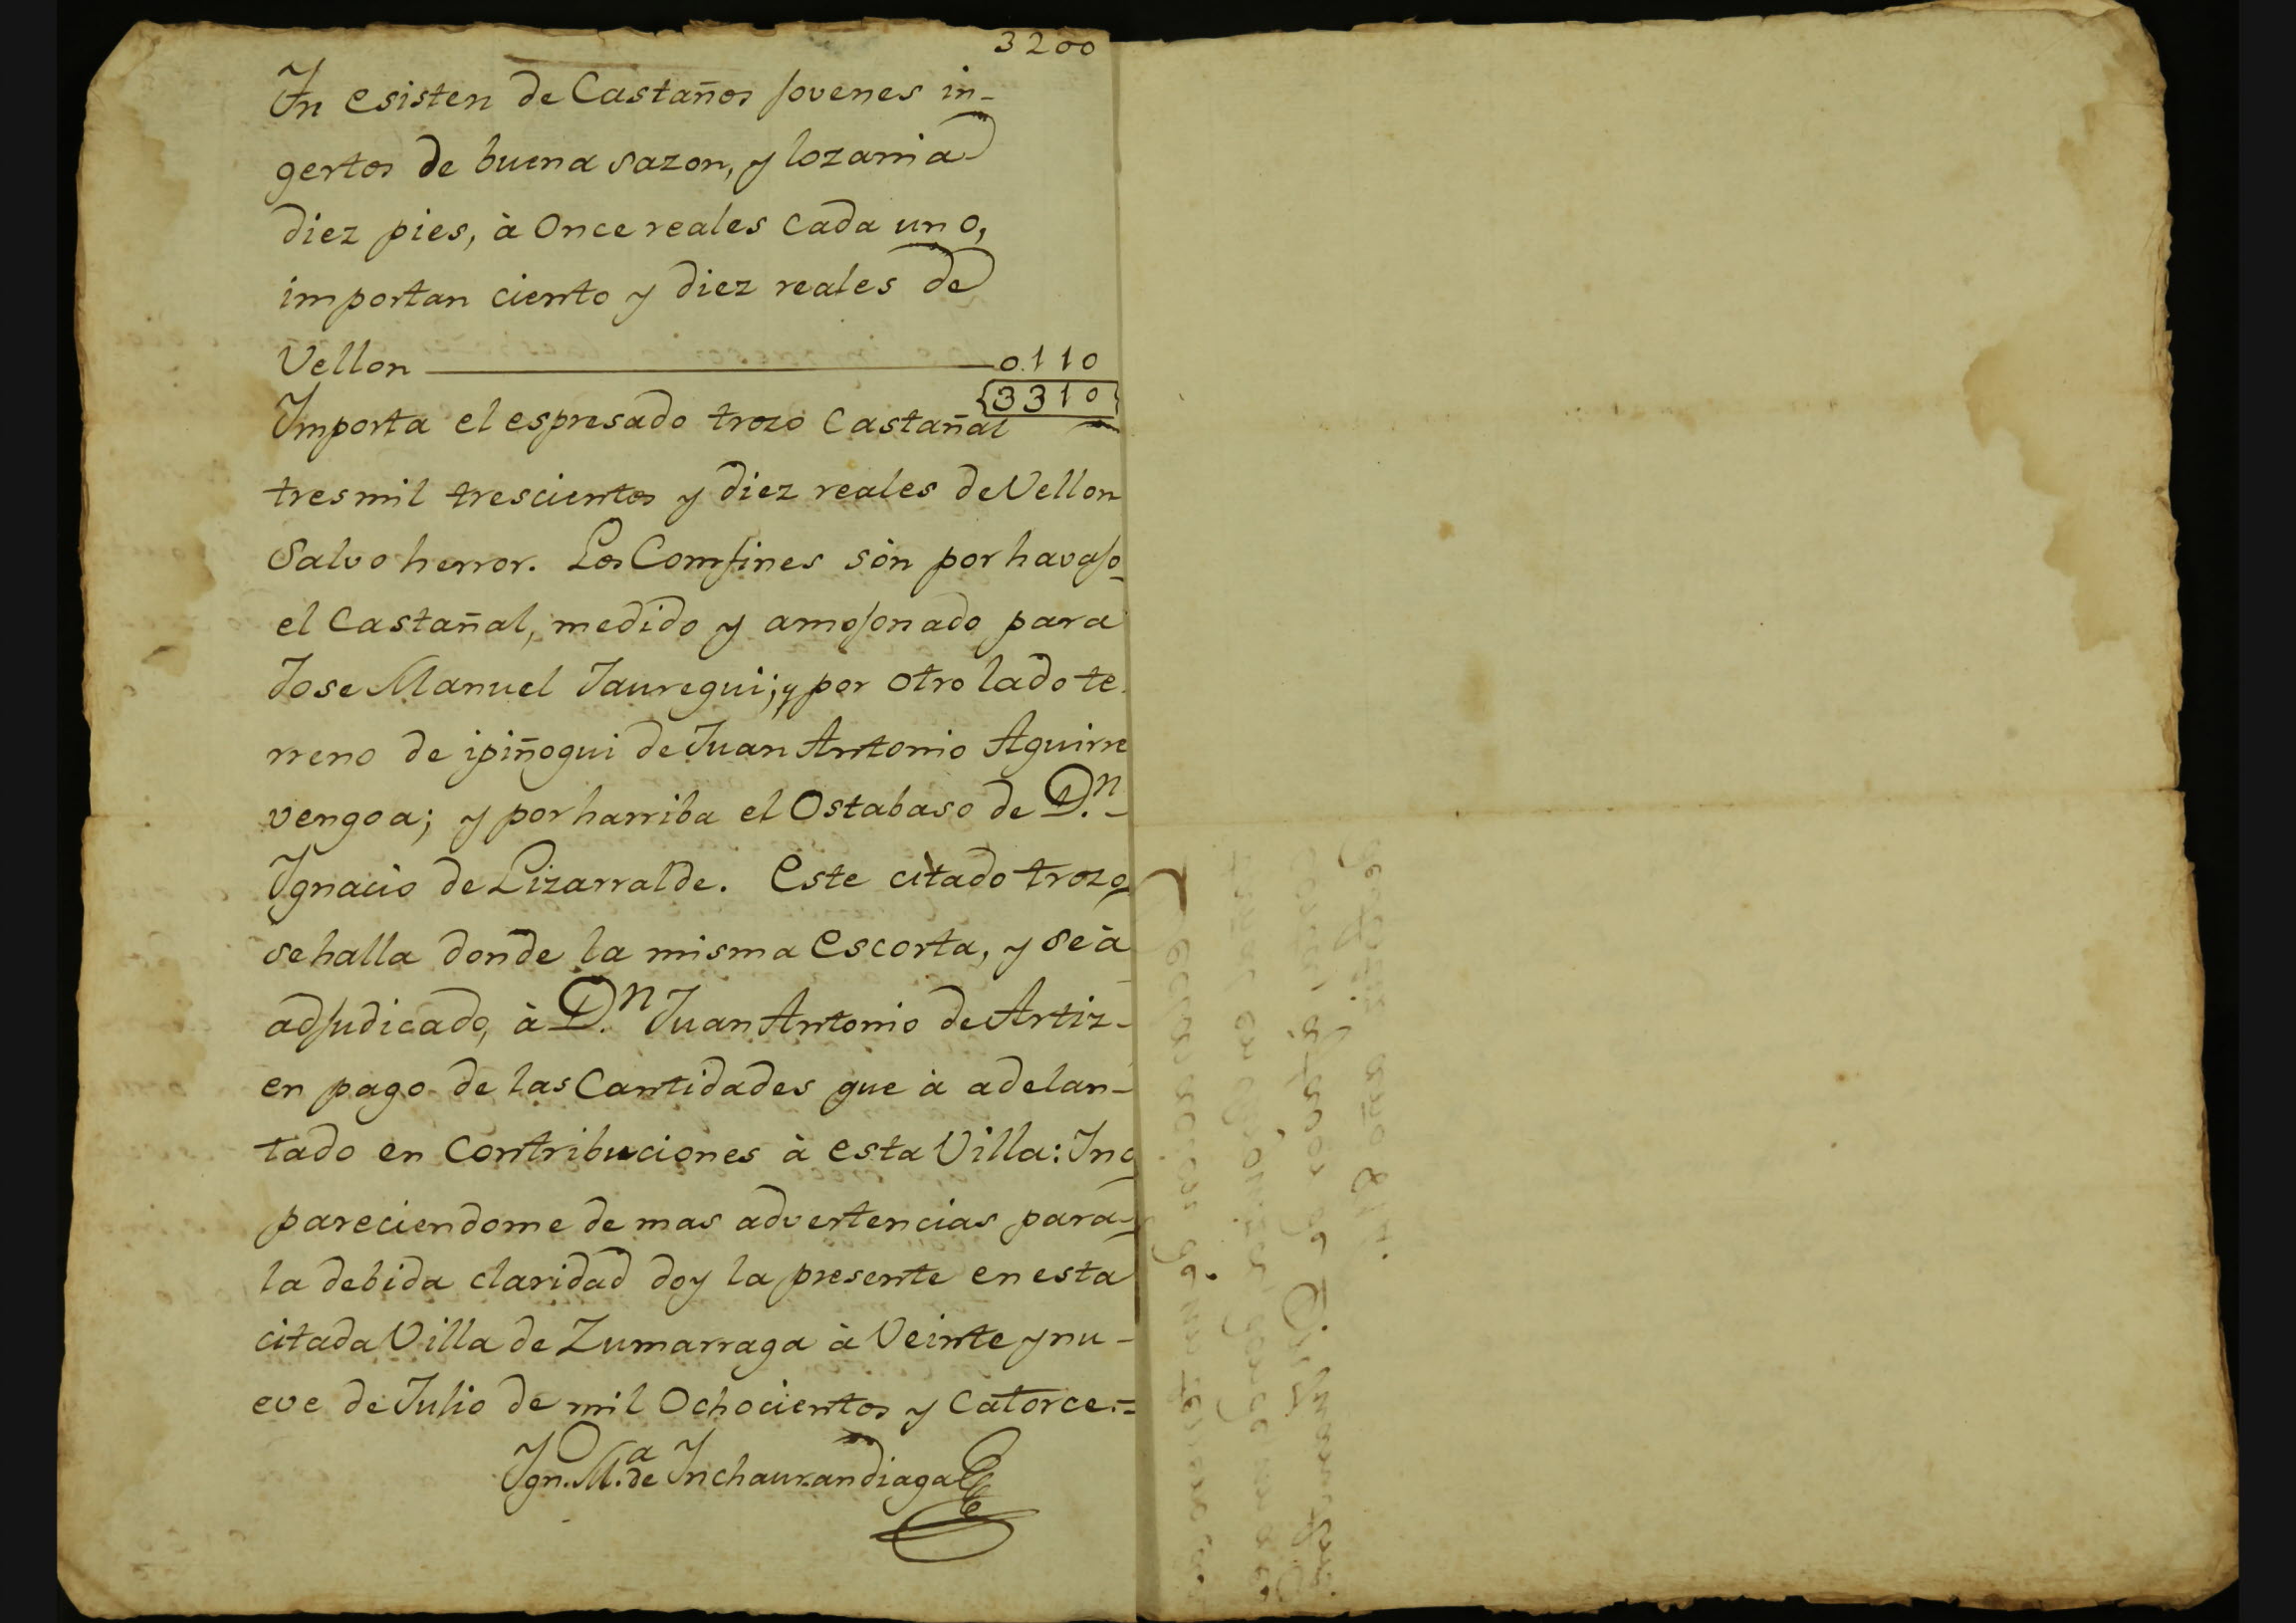 3200
In esisten de Castaños jovenes in-
gertos de buena sazon, y lozania
diez pies, à Once reales cada uno,
importan ciento y diez reales de
Vellon 0.110
3310
Importa el espresado trozo Castañal
tres mil trescientos y diez reales de Vellon
Salvo herror. Los Comfines sòn por havajo
el Castañal, medido y amojonado para
Jose Manuel Jauregui; y por otro lado te
rreno de ipiñogui de Juan Antonio Aguirre
vengoa; y por harriba el Ostabaso de D.n
Ygnacio de Lizarralde. Este citado trozo
se halla donde la misma Escorta, y se à
adjudicado, à D.n Juan Antonio de Artiz-
en pago de las Cantidades que à adelan-
tado en Contribuciones à esta Villa: Y no
pareciendome de mas advertencias para
la debida claridad doy la presente en esta
citada Villa de Zumarraga à Veinte y nu-
eve de Julio de mil Ochocientos y Catorce.=
Ygn. M.a de Inchaurandiaga